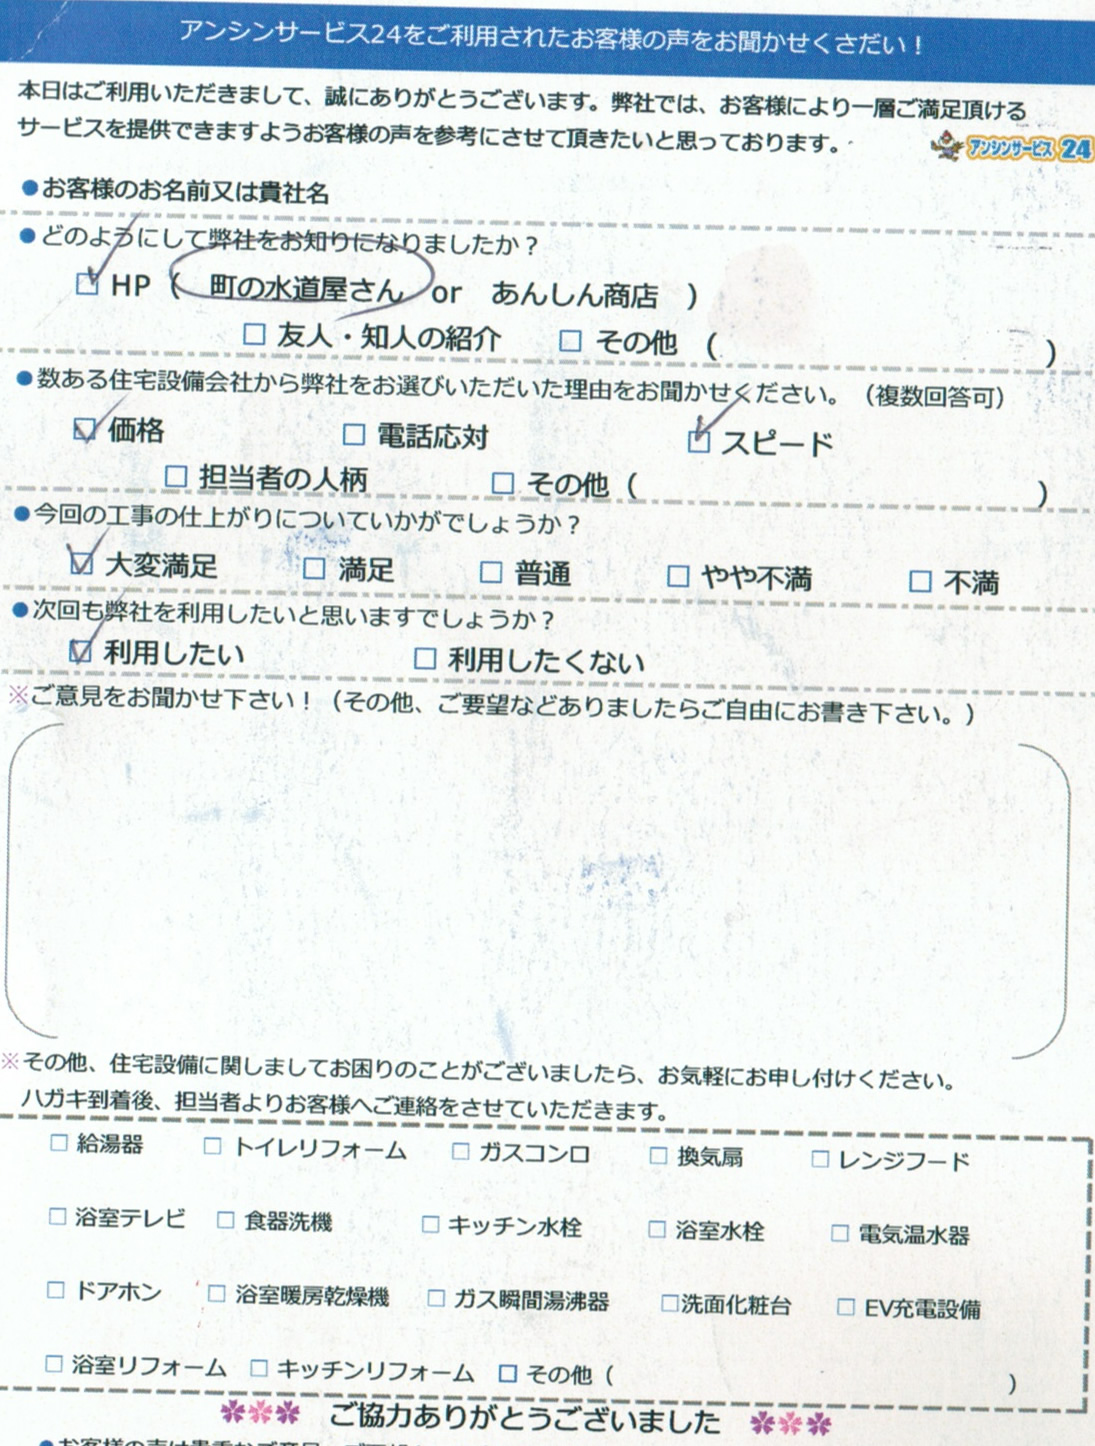 アンシンサービス24をご利用されたお客様の声をお聞かせくさだい！
本日はご利用いただきまして、誠にありがとうございます。弊社では、お客様により一層ご満足頂ける
サービスを提供できますようお客様の声を参考にさせて頂きたいと思っております。
アンシンサービス 24
●お客様のお名前又は貴社名
●どのようにして弊社をお知りになりましたか？
☑ HP（ 町の水道屋さん or あんしん商店 ）
□ 友人・知人の紹介 □ その他（ ）
●数ある住宅設備会社から弊社をお選びいただいた理由をお聞かせください。（複数回答可）
☑ 価格 □ 電話応対 ☑ スピード
□ 担当者の人柄 □ その他（ ）
●今回の工事の仕上がりについていかがでしょうか？
☑ 大変満足 □ 満足 □ 普通 □ やや不満 □ 不満
●次回も弊社を利用したいと思いますでしょうか？
☑ 利用したい □ 利用したくない
※ご意見をお聞かせ下さい！（その他、ご要望などありましたらご自由にお書き下さい。）
※その他、住宅設備に関しましてお困りのことがございましたら、お気軽にお申し付けください。
ハガキ到着後、担当者よりお客様へご連絡をさせていただきます。
□ 給湯器 □ トイレリフォーム □ ガスコンロ □ 換気扇 □ レンジフード
□ 浴室テレビ □ 食器洗機 □ キッチン水栓 □ 浴室水栓 □ 電気温水器
□ ドアホン □ 浴室暖房乾燥機 □ ガス瞬間湯沸器 □洗面化粧台 □ EV充電設備
□ 浴室リフォーム □ キッチンリフォーム □ その他（ ）
ご協力ありがとうございました